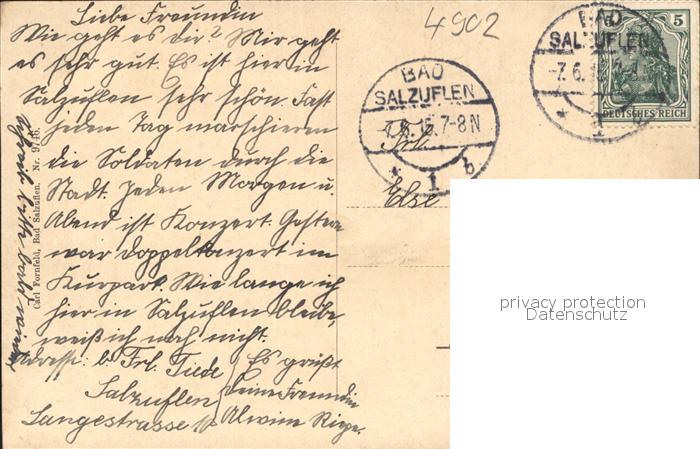 Liebe Freundin
Wie geht es dir? Mir geht
es sehr gut. Es ist hier in
Salzuflen sehr schön. Fast
jeden Tag marschieren
die Soldaten durch die
Stadt. Jeden Morgen u.
Abend ist Konzert. Gestern
war Doppelkonzert im
Kurpark. Wie lange ich
hier in Salzuflen bleibe,
weiß ich noch nicht.
Adresse: b. Frl. Tiede
Salzuflen
Langestrasse
Es grüßt
Deine Freundin
Alwine Riepe.
Carl Fornfeld, Bad Salzuflen. Nr. 9716.
4902
BAD
SALZUFLEN
7.6.15.7-8N
* 1 b
Frl.
Else
BAD
SALZUFLEN
-7.6.
* 1 b
5
DEUTSCHES REICH
privacy protection
Datenschutz